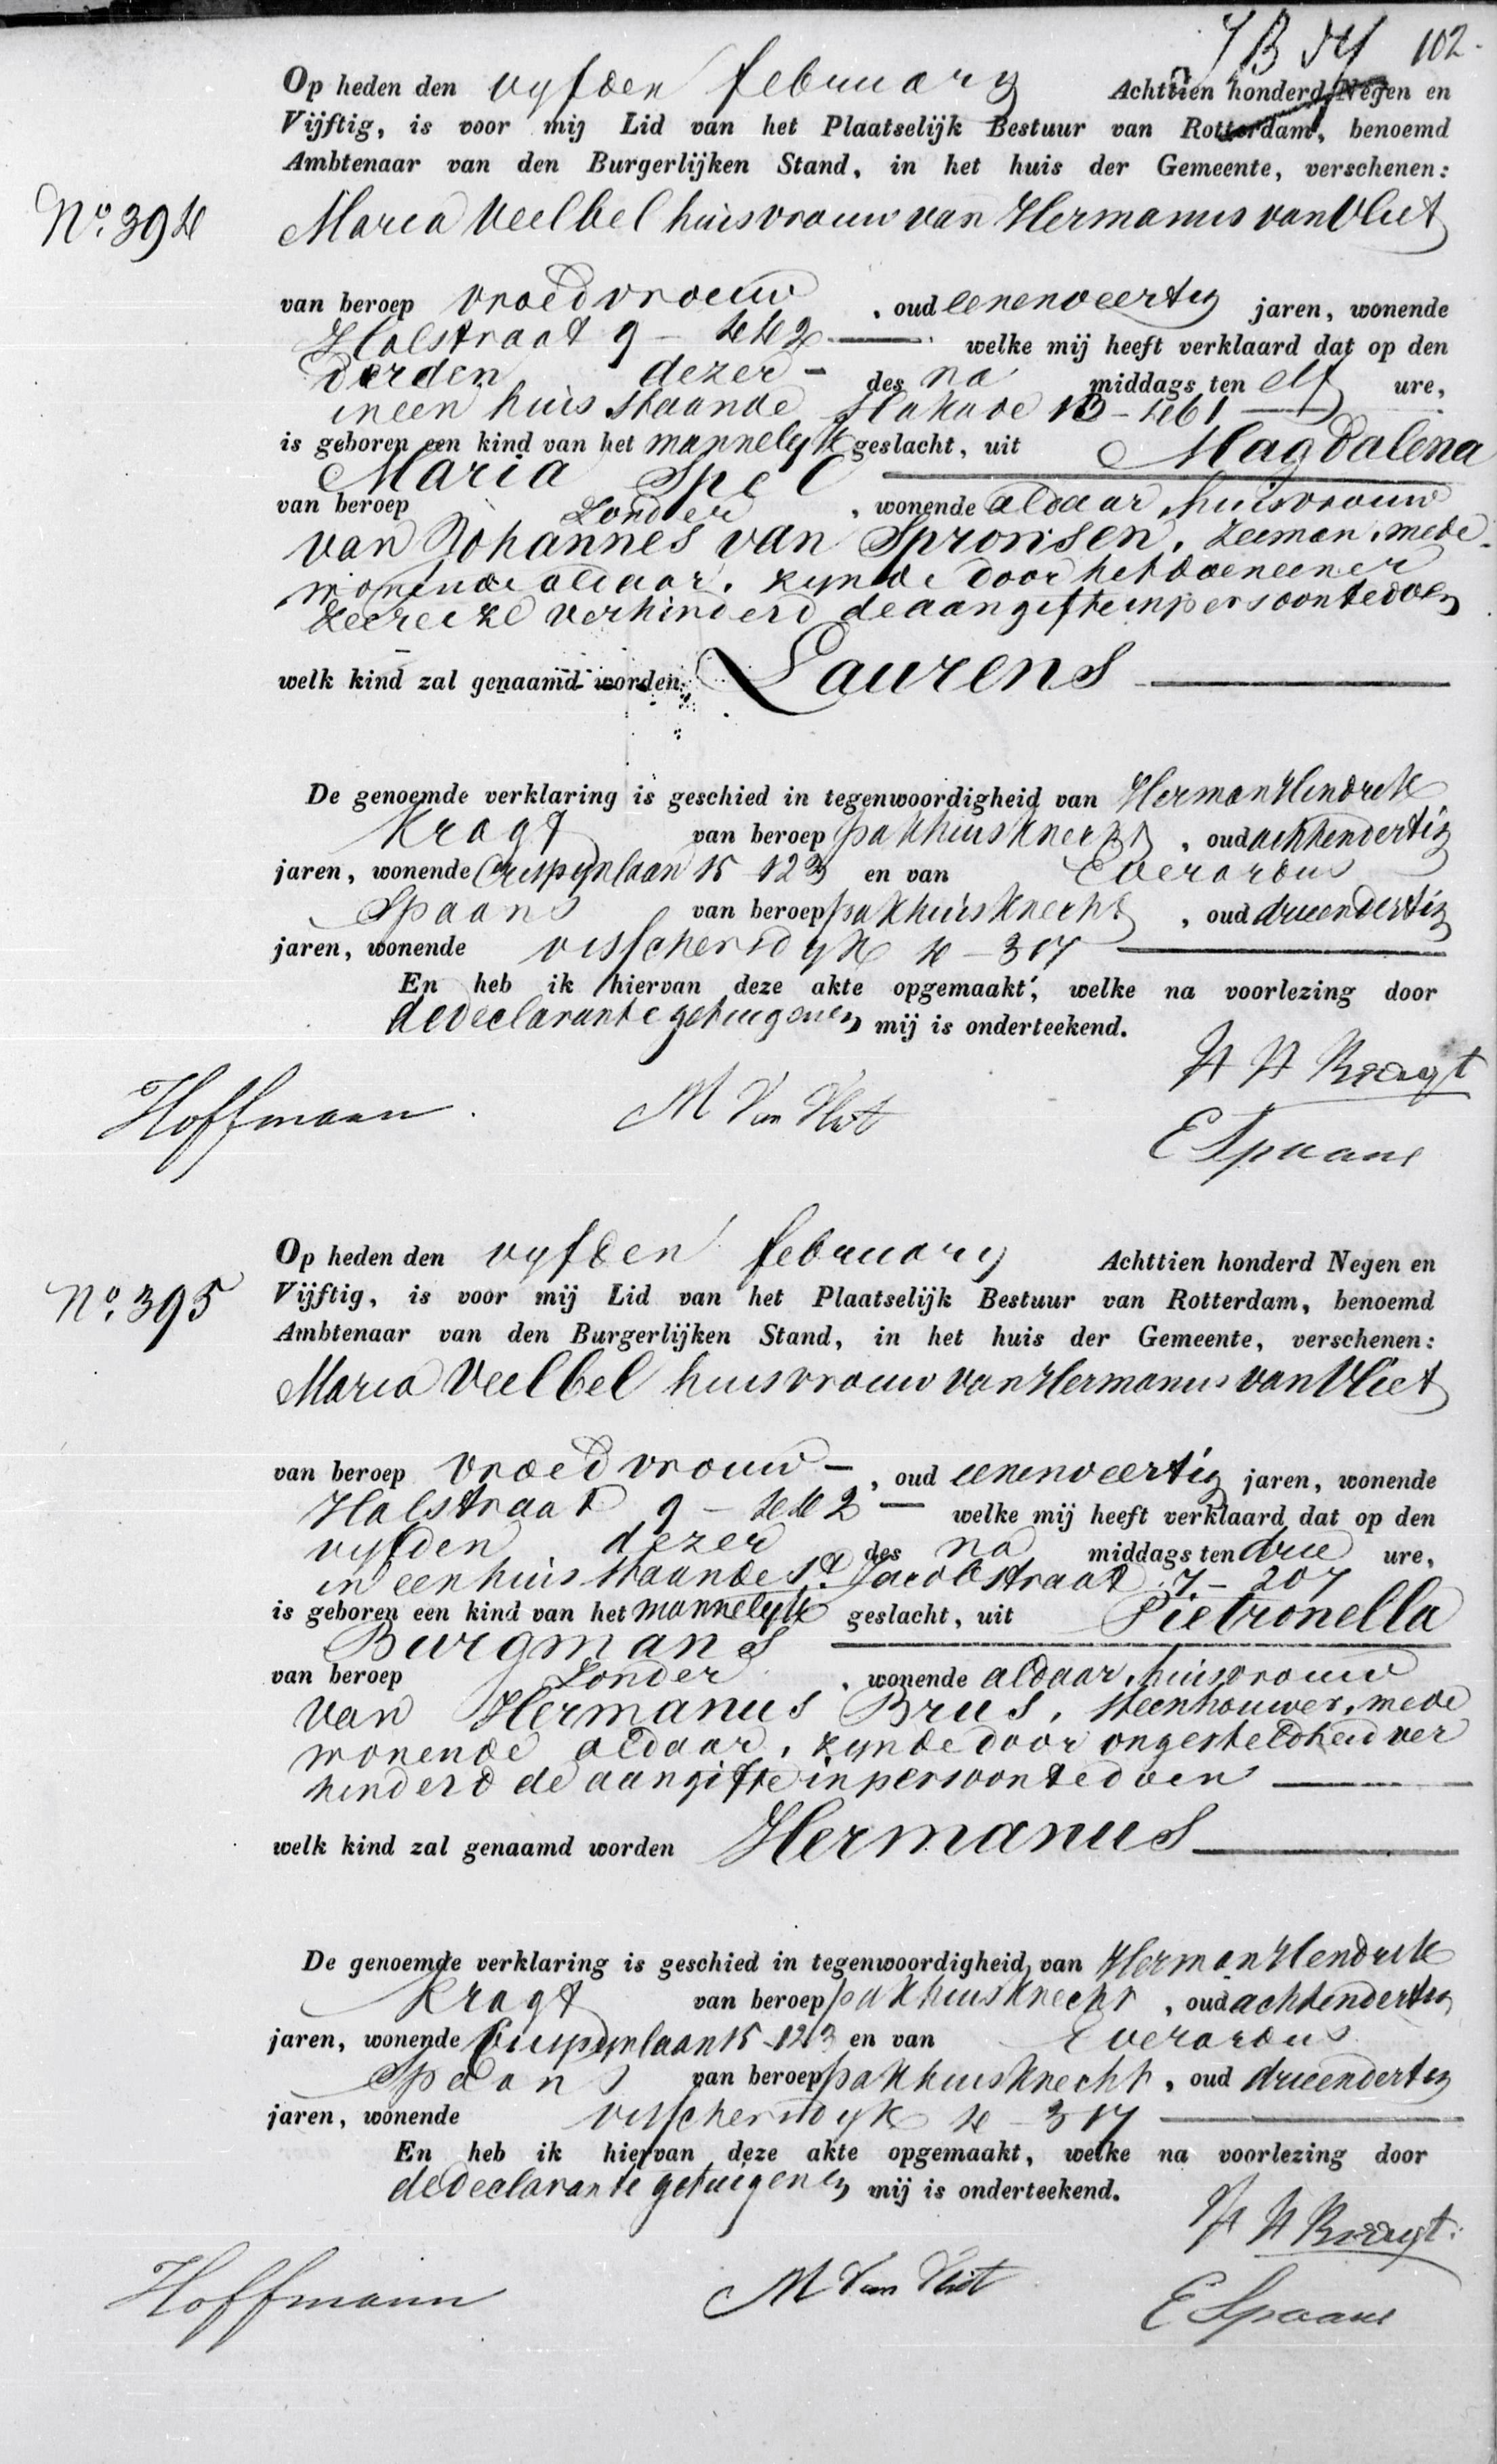 102.
Op heden den vyfden february Achttien honderd Negen en
Vijftig, is voor mij Lid van het Plaatselijk Bestuur van Rotterdam, benoemd
Ambtenaar van den Burgerlijken Stand, in het huis der Gemeente, verschenen:
No. 394 Maria Veelbel huisvrouw van Hermanus van Vliet
van beroep vroedvrouw, oud eenenveertig jaren, wonende
Halstraat 9 – 442 — welke mij heeft verklaard dat op den
derden dezer – des na middags ten elf ure,
in een huis staande 13 – 461 —
is geboren een kind van het mannelyk geslacht, uit Magdalena
Maria Spel —
van beroep Zonder, wonende aldaar, huisvrouw
van Johannes van Spronsen, zeeman, mede
wonende aldaar, zynde door het doen eener
zeereize verhinderd de aangifte in persoon te doen
welk kind zal genaamd worden Laurens —
De genoemde verklaring is geschied in tegenwoordigheid van Herman Hendrik
Kragt van beroep pakhuisknecht, oud achtendertig
jaren, wonende Crispynlaan 15 – 123 en van Everardus
Spaans van beroep pakhuisknecht, oud drieendertig
jaren, wonende visschersdyk 4 – 317 —
En heb ik hiervan deze akte opgemaakt, welke na voorlezing door
de declarante getuigen en mij is onderteekend.
H H Kragt
Hoffmann. M Van Vliet
E Spaans
Op heden den vyfden february Achttien honderd Negen en
No. 395 Vijftig, is voor mij Lid van het Plaatselijk Bestuur van Rotterdam, benoemd
Ambtenaar van den Burgerlijken Stand, in het huis der Gemeente, verschenen:
Maria Veelbel huisvrouw van Hermanus van Vliet
van beroep vroedvrouw –, oud eenenveertig jaren, wonende
Halstraat 9 – 442 — welke mij heeft verklaard dat op den
vyfden dezer des na middags ten drie ure,
in een huis staande St. Jacobstraat 7 – 207
is geboren een kind van het mannelyk geslacht, uit Pietronella
Burgmans —
van beroep Zonder, wonende aldaar, huisvrouw
van Hermanus Brus, steenhouwer, mede
wonende aldaar, zynde door ongesteldheid ver
hinderd de aangifte in persoon te doen —
welk kind zal genaamd worden Hermanus —
De genoemde verklaring is geschied in tegenwoordigheid van Herman Hendrik
Kragt van beroep pakhuisknecht, oud achtendertig
jaren, wonende Crispynlaan 15 – 123 en van Everardus
Spaans van beroep pakhuisknecht, oud drieendertig
jaren, wonende visschersdyk 4 – 317 —
En heb ik hiervan deze akte opgemaakt, welke na voorlezing door
de declarante getuigen en mij is onderteekend.
H H Kragt.
Hoffmann M Van Vliet
E Spaans